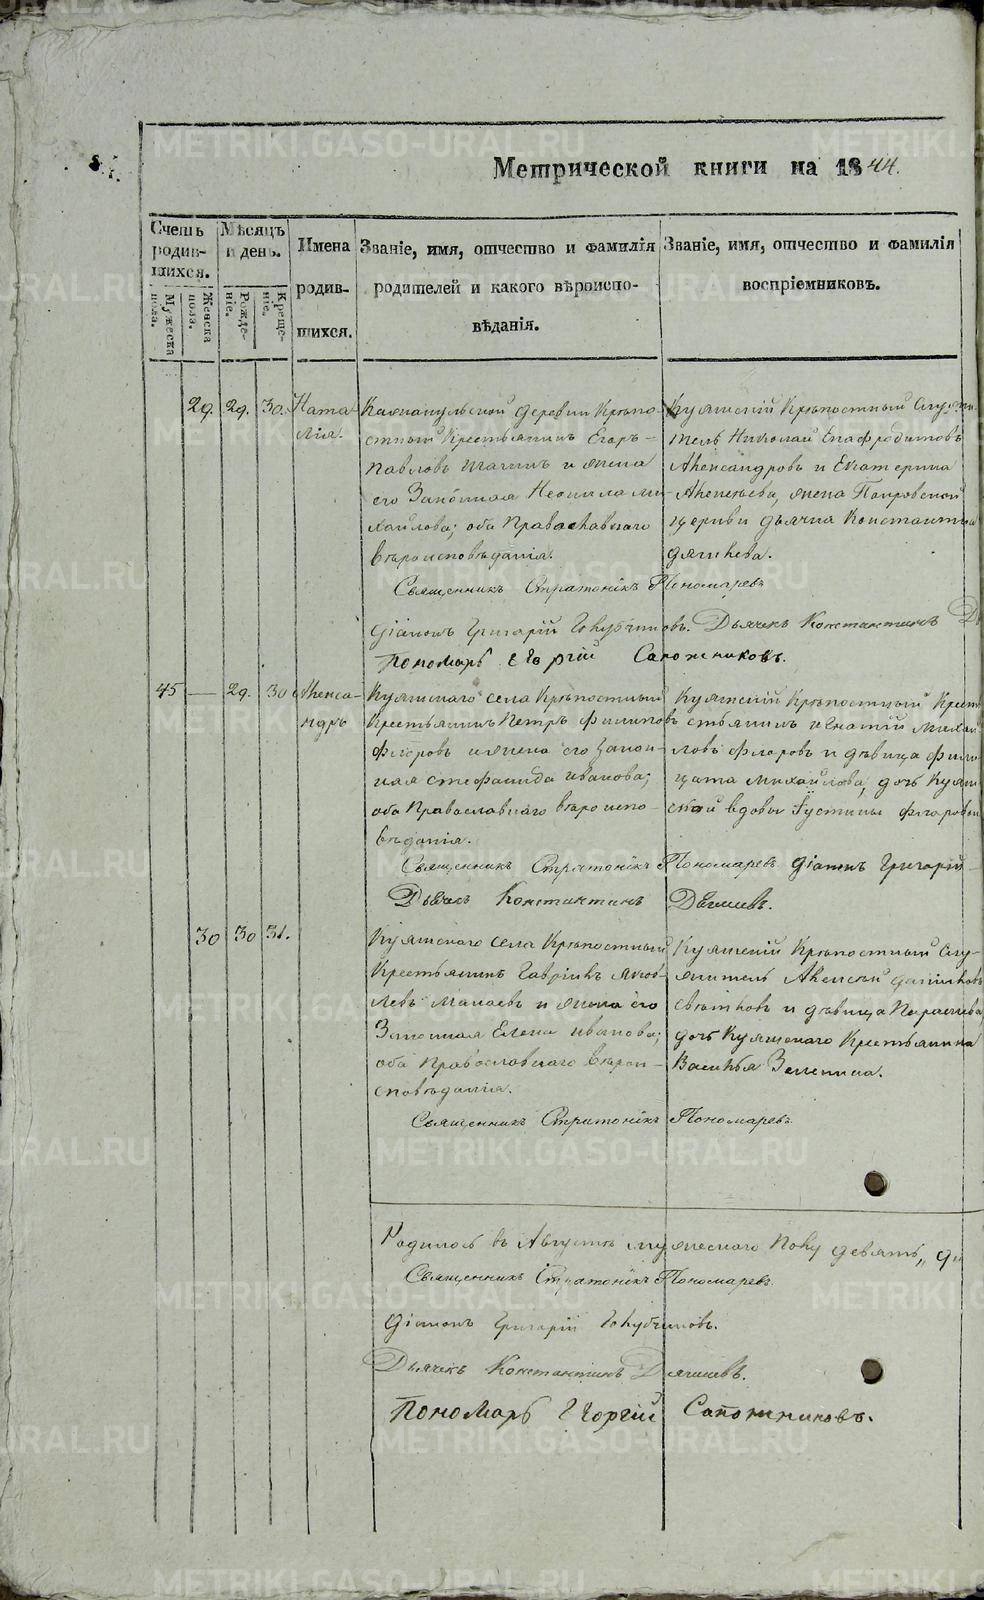 Метрической книги на 1844.
Счетъ родившихся.
Мужеска пола.
Женска пола.
Мѣсяцъ и день.
Рожденіе.
Крещеніе.
Имена родившихся.
Званіе, имя, отчество и фамилія родителей и какого вѣроисповѣданія.
Званіе, имя, отчество и фамилія воспріемниковъ.
29. 29. 30. Наталія.
деревни Крѣпо-
стный Крестьянинъ Егоръ
Павловъ и жена
его Законная Неонила Ми-
хайлова; оба Православнаго
вѣроисповѣданія.
Крѣпостный Служи-
тель Николай Епафродитовъ
Александровъ и Екатерина
Алексѣева, жена Покровской
церкви дьячка Константина
Дягилева.
Священникъ Стратоникъ Пономаревъ
Діаконъ Григорій Голубчиковъ. Дьячекъ Константинъ
Пономарь Георгій Сапожниковъ.
45 — 29. 30 Александръ
Куяшского села Крѣпостный
Крестьянинъ Петръ Филиповъ
Флоровъ и жена его Закон-
ная Стефанида Иванова;
оба Православнаго вѣроиспо-
вѣданія.
Куяшскій Крѣпостный Кре-
стьянинъ Игнатій Михай-
ловъ Флоровъ и дѣвица Фили-
цата Михайлова, дочь Куяш-
ской вдовы Іустины Флоровой
Священникъ Стратоникъ Пономаревъ Діаконъ Григорій
Дьячекъ Константинъ Дягилевъ.
30 30 31.
Куяшского села Крѣпостный
Крестьянинъ Гавріилъ Яков-
левъ и жена его
Законная Елена Иванова;
оба Православнаго вѣрои-
сповѣданія.
Куяшскій Крѣпостный Слу-
житель Алексѣй Даниловъ
и дѣвица Параскева,
дочь Куяшского Крестьянина
Василья Зеленина.
Священникъ Стратоникъ Пономаревъ
Родилось въ Августѣ мужескаго полу девять,
Священникъ Стратоникъ Пономаревъ
Діаконъ Григорій Голубчиковъ.
Дьячекъ Константинъ Дягилевъ.
Пономарь Георгій Сапожниковъ.
METRIKI.GASO-URAL.RU